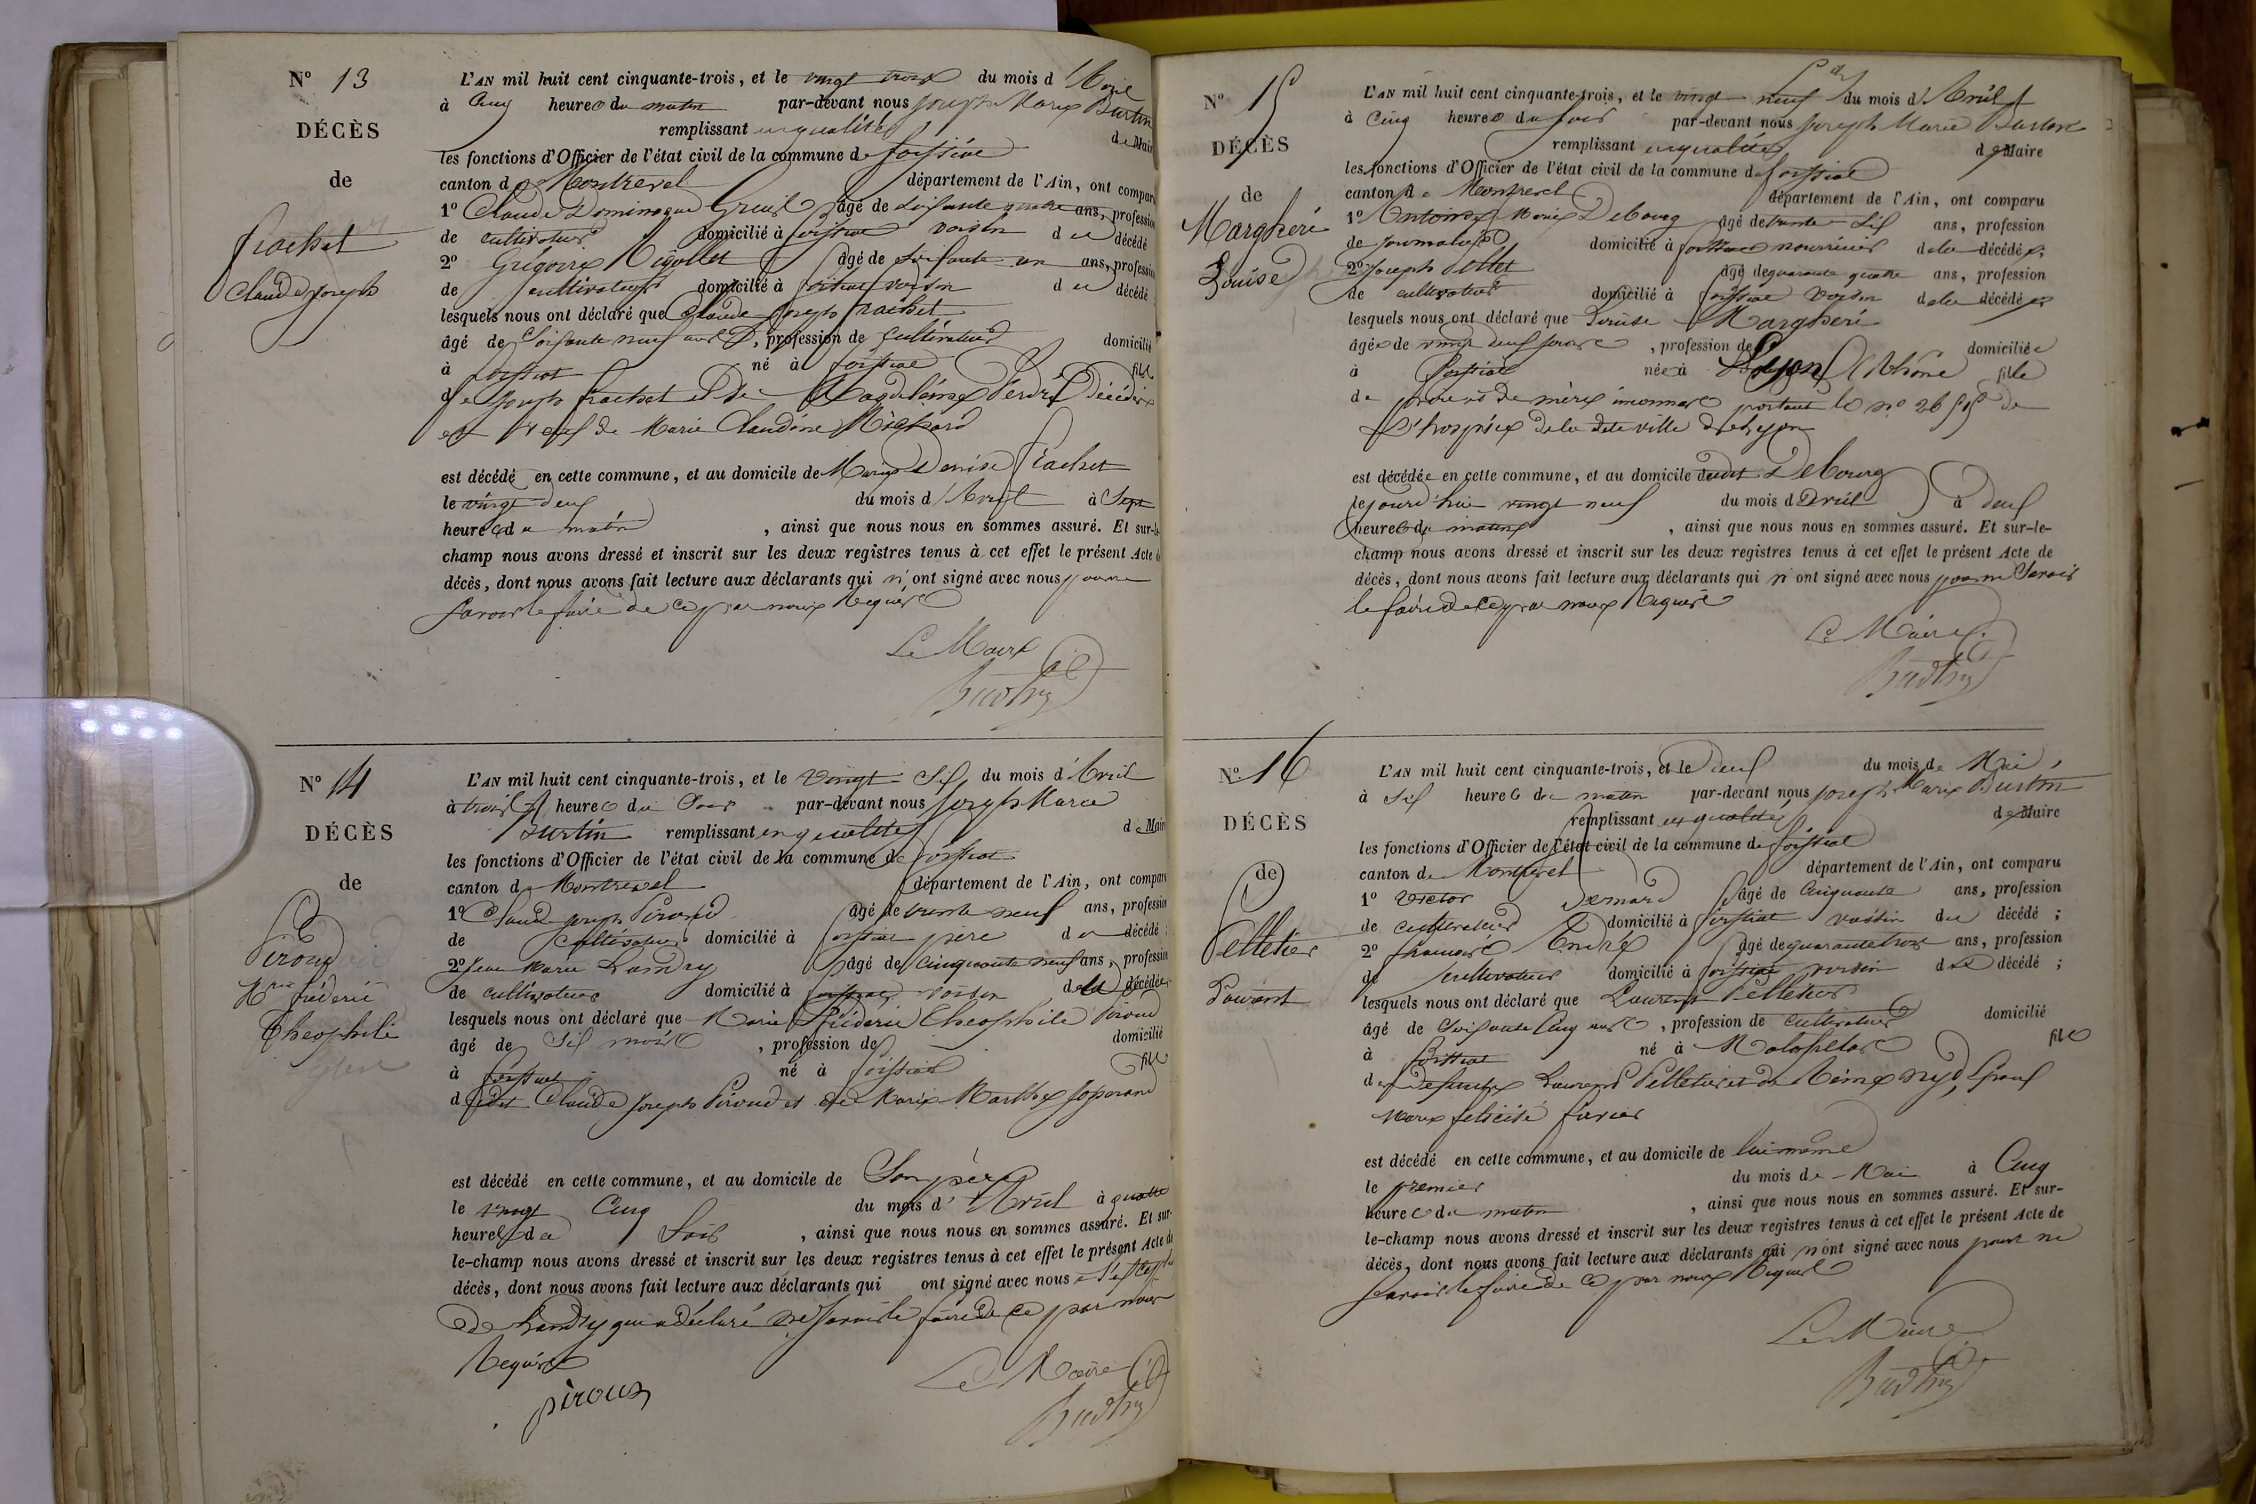 N° 13
DÉCÈS
de
Frachet
Claude Joseph
L'AN mil huit cent cinquante-trois, et le vingt trois du mois d'Avril
à Cinq heures du matin par-devant nous Joseph Marie Burtin
remplissant en qualité de Maire
les fonctions d'Officier de l'état civil de la commune de foissiat
canton de Montrevel département de l'Ain, ont comparu
1° Claude Dominique âgé de soixante quatre ans, profession
de cultivateur domicilié à foissiat voisin du décédé
2° Grégoire Rigollet âgé de soixante un ans, profession
de cultivateur domicilié à foissiat voisin du décédé
lesquels nous ont déclaré que Claude Joseph frachet
âgé de soixante neuf ans, profession de cultivateur domicilié
à foissiat né à foissiat fils
de Joseph frachet et de Magdelaine Perdrix Décédés
et veuf de Marie Claudine Michard
est décédé en cette commune, et au domicile de Marie Denise frachet
le vingt deux du mois d'Avril à Sept
heures du matin, ainsi que nous nous en sommes assuré. Et sur-le-
champ nous avons dressé et inscrit sur les deux registres tenus à cet effet le présent Acte de
décès, dont nous avons fait lecture aux déclarants qui n'ont signé avec nous pour ne
savoir le faire de ce par nous Requis
Le Maire
Burtin
N° 14
DÉCÈS
de
Piroud
Mrie fréderic
Théophile
L'AN mil huit cent cinquante-trois, et le vingt-six du mois d'Avril
à trois heures du soir par-devant nous Joseph Marie
Burtin remplissant en qualité de Maire
les fonctions d'Officier de l'état civil de la commune de foissiat
canton de Montrevel département de l'Ain, ont comparu
1° Claude Joseph Piroud âgé de trente neuf ans, profession
de cultivateur domicilié à foissiat père du décédé ;
2° Jean Marie Landry âgé de cinquante neuf ans, profession
de cultivateur domicilié à foissiat voisin de la décédée
lesquels nous ont déclaré que Marie fréderic Théophile Piroud
âgé de six mois, profession de domicilié
à foissiat né à foissiat fils
dudit Claude Joseph Piroud et de Marie Marthe
est décédé en cette commune, et au domicile de Son père
le vingt Cinq du mois d'Avril à quatre
heures du Soir, ainsi que nous nous en sommes assuré. Et sur-
le-champ nous avons dressé et inscrit sur les deux registres tenus à cet effet le présent Acte de
décès, dont nous avons fait lecture aux déclarants qui ont signé avec nous
de Landry qui a déclaré ne savoir le faire de ce par nous
Requis
piroud
Le Maire
Burtin
N° 15
DÉCÈS
de
Margheri
Louise
L'AN mil huit cent cinquante-trois, et le vingt neuf du mois d'Avril
à Cinq heures du soir par-devant nous Joseph Marie Burtin
remplissant en qualité de Maire
les fonctions d'Officier de l'état civil de la commune de foissiat
canton de Montrevel département de l'Ain, ont comparu
1° Antoine Marie Debourg âgé de trente six ans, profession
de journalier domicilié à foissiat nourricier de la décédée ;
2° Joseph Pillet âgé de quarante quatre ans, profession
de cultivateur domicilié à foissiat voisin de la décédée
lesquels nous ont déclaré que Louise Margheri
âgée de vingt deux jours, profession de domiciliée
à foissiat née à Lyon Rhône fille
de père et de mère inconnus portant le n° de
L'hospice de la dite ville de Lyon
est décédée en cette commune, et au domicile dudit Debourg
le jourd'hui vingt neuf du mois d'Avril à deux
heures du matin, ainsi que nous nous en sommes assuré. Et sur-le-
champ nous avons dressé et inscrit sur les deux registres tenus à cet effet le présent Acte de
décès, dont nous avons fait lecture aux déclarants qui n'ont signé avec nous pour ne Savoir
le faire de ce par nous Requis
Le Maire
Burtin
N° 16
DÉCÈS
de
Pelletier
Laurent
L'AN mil huit cent cinquante-trois, et le deux du mois de Mai
à six heures du matin par-devant nous Joseph Marie Burtin
remplissant en qualité de Maire
les fonctions d'Officier de l'état civil de la commune de foissiat
canton de Montrevel département de l'Ain, ont comparu
1° Victor Bernard âgé de Cinquante ans, profession
de cultivateur domicilié à foissiat voisin du décédé ;
2° françois André âgé de quarante trois ans, profession
de cultivateur domicilié à foissiat voisin du décédé ;
lesquels nous ont déclaré que Laurent Pelletier
âgé de soixante Cinq ans, profession de cultivateur domicilié
à foissiat né à Malafretaz fils
de défunts Laurent Pelletier et de Reine nyd, Epoux
Marie félicité favier
est décédé en cette commune, et au domicile de lui même
le premier du mois de Mai à Cinq
heures du matin, ainsi que nous nous en sommes assuré. Et sur-
le-champ nous avons dressé et inscrit sur les deux registres tenus à cet effet le présent Acte de
décès, dont nous avons fait lecture aux déclarants qui n'ont signé avec nous pour ne
savoir le faire de ce par nous Requis
Le Maire
Burtin